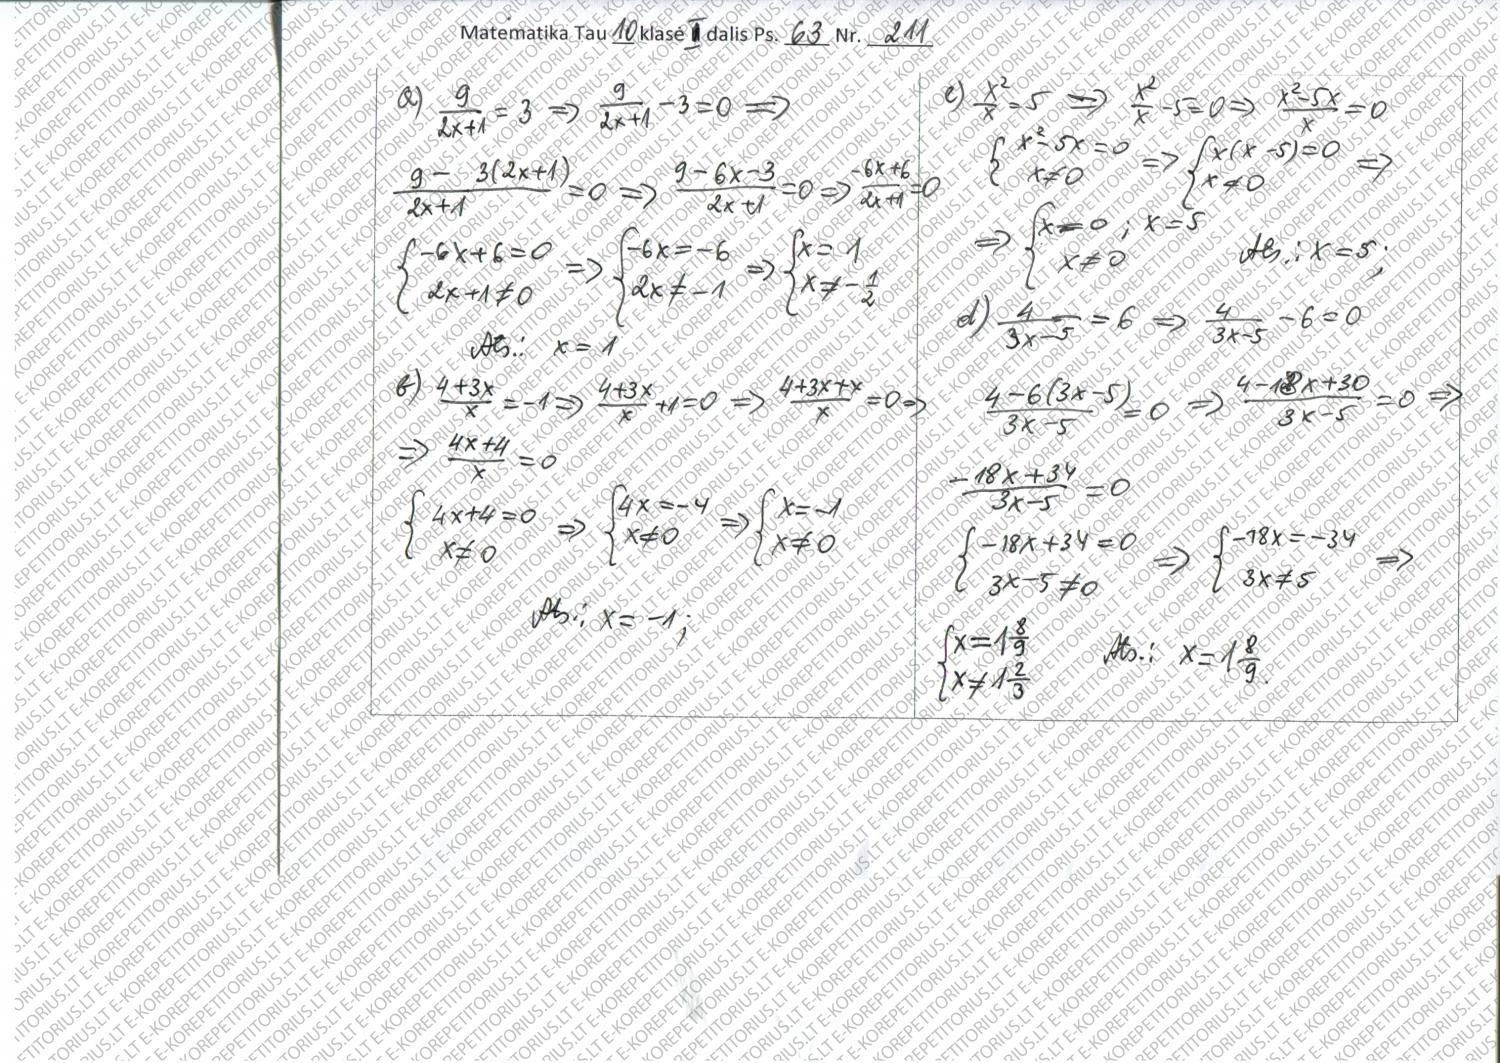 Matematika Tau 10 klasė I dalis Ps. 63 Nr. 211
a) 9/(2x+1) = 3 => 9/(2x+1) - 3 = 0 =>
(9 - 3(2x+1))/(2x+1) = 0 => (9 - 6x - 3)/(2x+1) = 0 => (-6x+6)/(2x+1) = 0
{ -6x+6=0 => { -6x=-6 => { x=1
2x+1≠0 2x≠-1 x≠-1/2
Ats.: x=1
b) (4+3x)/x = -1 => (4+3x)/x + 1 = 0 => (4+3x+x)/x = 0 =>
=> (4x+4)/x = 0
{ 4x+4=0 => { 4x=-4 => { x=-1
x≠0 x≠0 x≠0
Ats.: x=-1;
c) x²/x = 5 => x²/x - 5 = 0 => (x²-5x)/x = 0
{ x²-5x=0 => { x(x-5)=0 =>
x≠0 x≠0
=> { x=0; x=5
x≠0 Ats.: x=5;
d) 4/(3x-5) = 6 => 4/(3x-5) - 6 = 0
(4-6(3x-5))/(3x-5) = 0 => (4-18x+30)/(3x-5) = 0 =>
(-18x+34)/(3x-5) = 0
{ -18x+34=0 => { -18x=-34 =>
3x-5≠0 3x≠5
{ x=1 8/9 Ats.: x=1 8/9.
x≠1 2/3
E-KOREPETITORIUS.LT